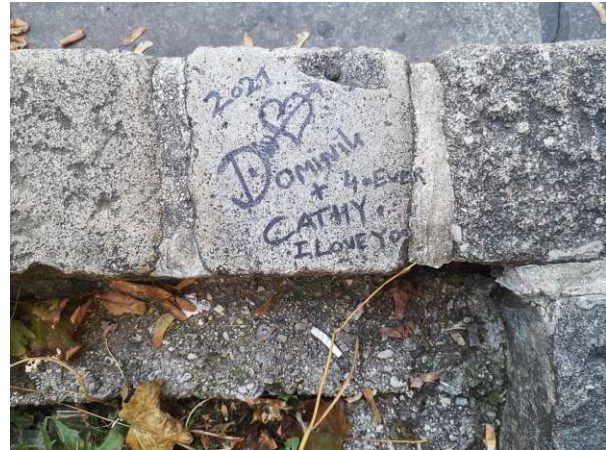 2021
DOMINIK
+ 4-EVER
CATHY.
I LOVE YOU